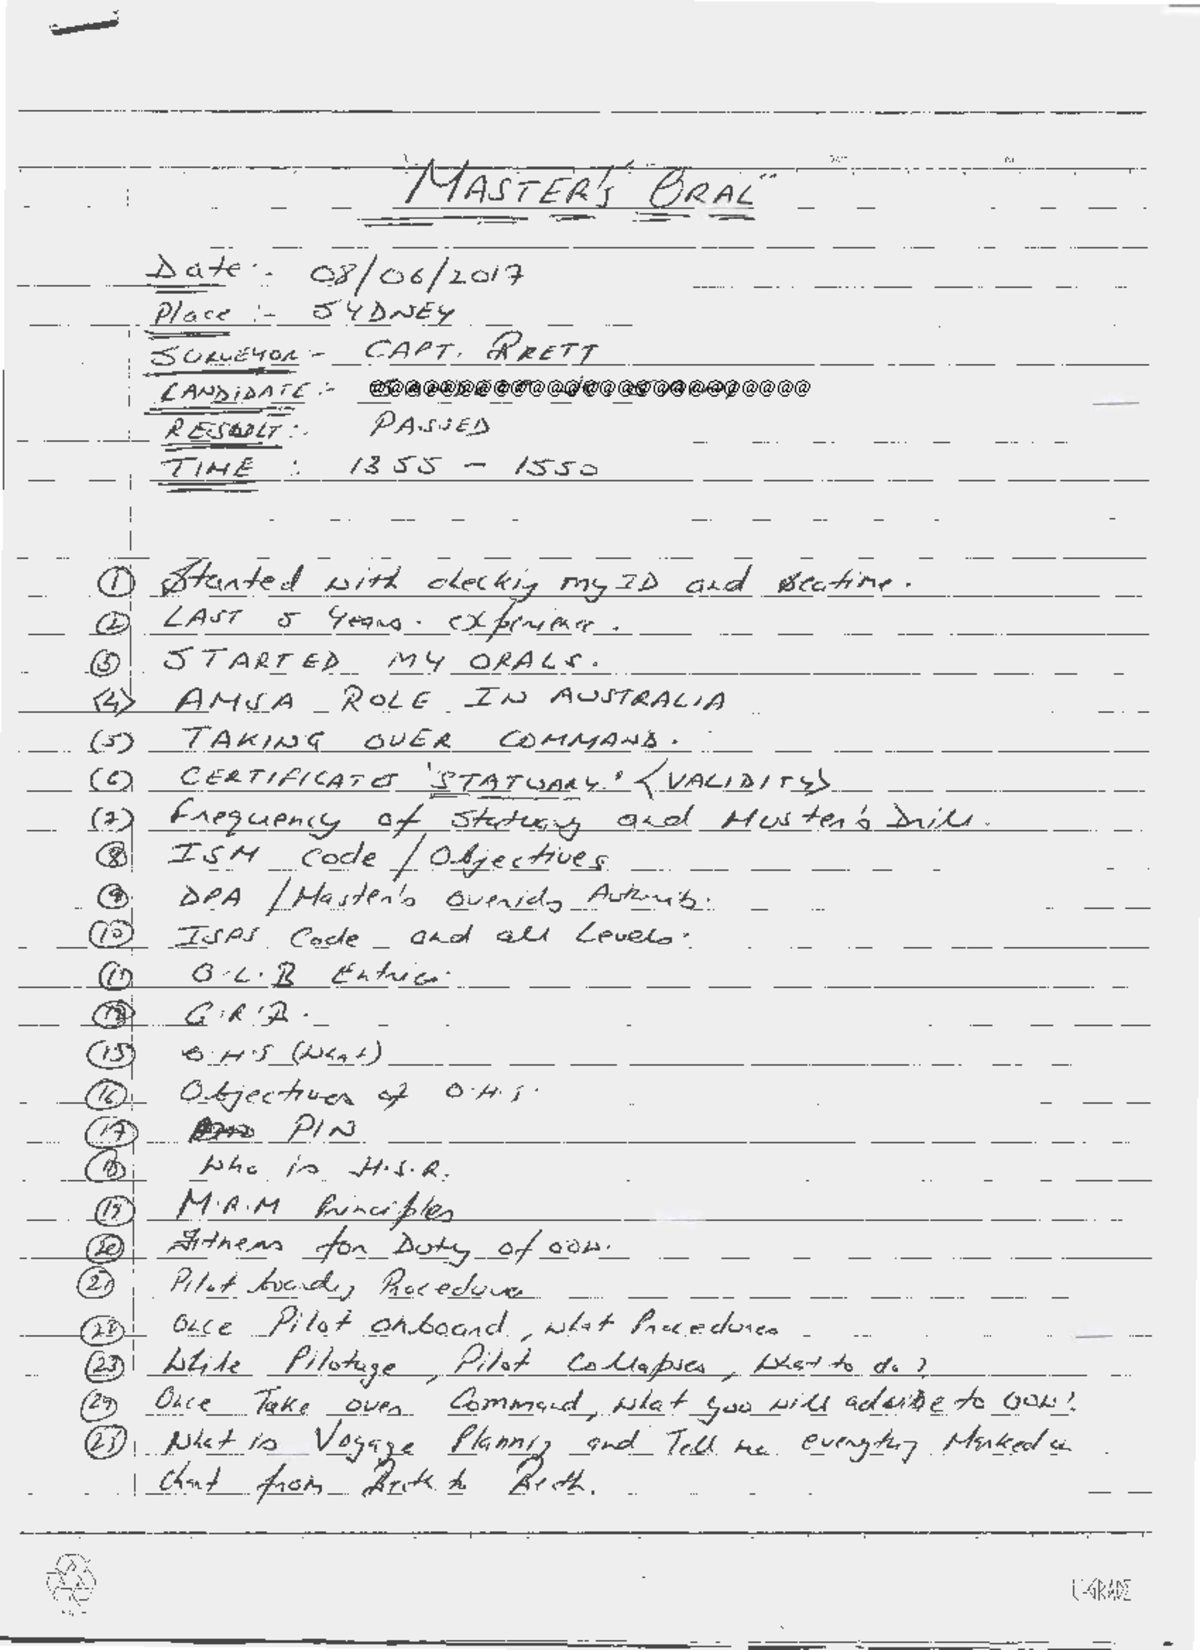 "MASTER'S ORAL"
Date :- 08/06/2017
Place :- SYDNEY
SURVEYOR :- CAPT. BRETT
CANDIDATE :-
RESULT :- PASSED
TIME : 1355 - 1550
(1) Started with checkig my ID and Seatime.
(2) LAST 5 Years. experience.
(3) STARTED MY ORALS.
(4) AMSA ROLE IN AUSTRALIA
(5) TAKING OVER COMMAND.
(6) CERTIFICATES 'STATUARY.' <VALIDITY>
(7) Frequency of Statuary and Muster's Drill.
(8) ISM Code / Objectives
(9) DPA / Master's Overidg Authority.
(10) ISPS Code and all Levels.
(11) O.L.B Entries.
G.R.B.
(15) O.H.S (What)
(16) Objectives of O.H.S.
(17) PIN
(18) Who is H.S.R.
(19) M.R.M Principles
(20) Fitness for Duty of OOW.
(21) Pilot boardg Procedures
(22) Once Pilot onboard, what Procedures
(23) While Pilotage, Pilot Collapses, What to do?
(24) Once Take over Command, what you will advise to OOW?
(25) What is Voyage Planning and Tell me everythg Marked on
Chart from Berth to Berth.
L-GRADE